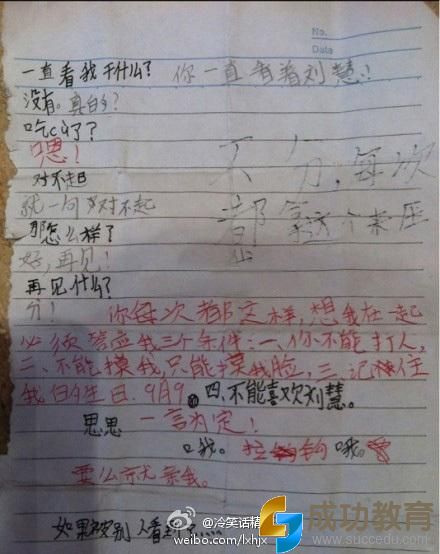 No.
Date
一直看我干什么? 你一直看着刘慧!
没有。真的?
吃c了?
嗯!
不分,每次
对不起
就一句对不起
都拿这个来压
那怎么样了?
好,再见!
再见什么?
分! 你每次都这样,想我在一起
必须答应我三个条件:一、你不能打人,
二、不能摸我,只能摸我脸,三、记住
我的生日.9月9。四、不能喜欢刘慧。
思思 一言为定!
口我。拉钩 哦。
要么就亲我。
如果被别人看到
@冷笑话精
weibo.com/lxhjx
成功教育
www.succedu.com